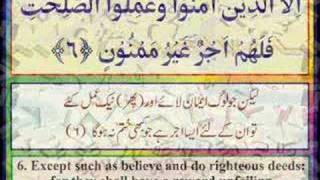 اِلَّا الَّذِيْنَ اٰمَنُوْا وَعَمِلُوا الصّٰلِحٰتِ
فَلَهُمْ اَجْرٌ غَيْرُ مَمْنُوْنٍ ﴿٦﴾
لیکن جو لوگ ایمان لائے اور (پھر) نیک عمل کئے
تو ان کے لئے ایسا اجر ہے جو کبھی ختم نہ ہوگا (۶)
6. Except such as believe and do righteous deeds:
for they shall have a reward unfailing.